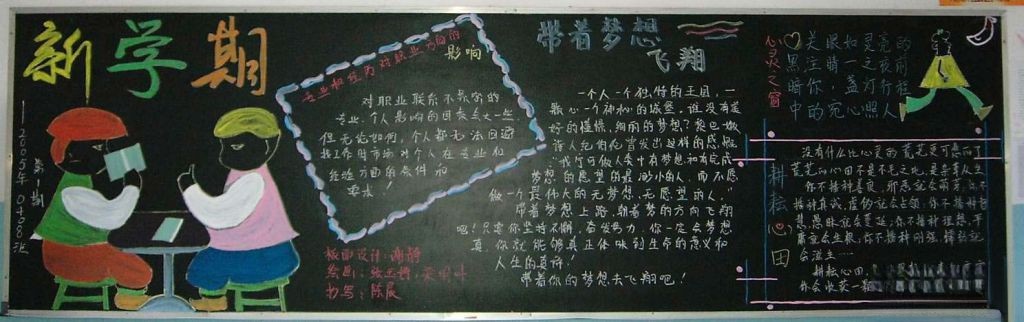 新学期
2005年 第1期
0408班
专业和经历对职业方面的
影响
对职业联系不紧密的
专业,个人影响的因素会大一些
但无论如何,个人都无法回避
找工作时市场对个人在专业和
经验方面的条件和
要求!
版面设计:谢静
绘画:
书写:陈晨
带着梦想
飞翔
一个人一个独特的王国,一
颗心一个神秘的城堡,谁没有美
好的憧憬,绚丽的梦想?
诗人纪伯伦曾发出这样的感慨
“我宁可做人类中有梦想和有完成
梦想的愿望的最渺小的人,而不愿
做一个最伟大的无梦想,无愿望的人。”
带着梦想上路,朝着梦的方向飞翔
吧!只要你坚持不懈,奋发努力,你一定会梦想
真,你就能够真正体味到生命的意义和
人生的真谛!
带着你的梦想去飞翔吧!
心灵之窗
美眼如灵亮的
黑注睛一之夜前
暗你,盏灯行程
中的宛心照人
耕耘心田
没有什么比心灵的荒芜更可悲的了
荒芜的心田不是不毛之地,是杂草丛生
你不播种善良,邪恶就会萌芽,你不
播种真诚,虚伪就会占领,你不播种智
慧,愚昧就会蔓延,你不播种理想,平
庸就会生根,你不播种刚强,懦弱就
会滋生……
耕耘心田,
你会收获一